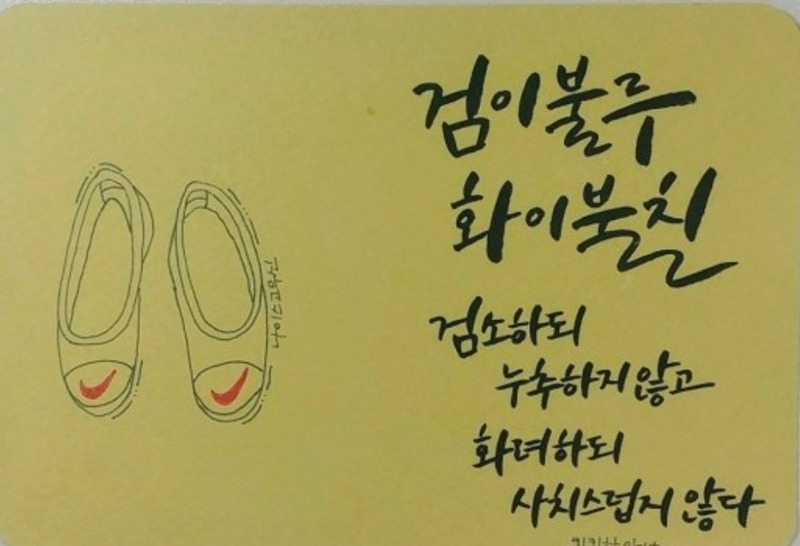 검이불루
화이불칠
검소하되
누추하지 않고
화려하되
사치스럽지 않다
나이스고무신